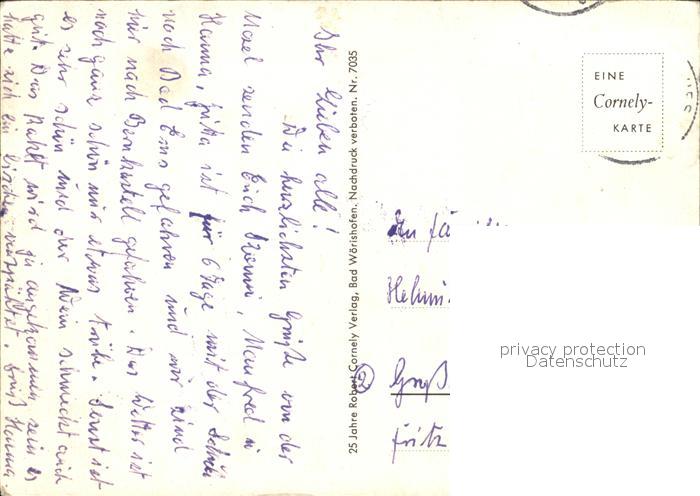 Ihr Lieben alle!
Die herzlichsten Grüße von der
Mosel senden Euch Manfred u
Hanna, ist für 6 Tage mit der Schule
nach Bad Ems gefahren und wir sind
hier nach Bernkastel gefahren. Das Wetter ist
noch ganz schön nur etwas trübe. Sonst ist
es sehr schön und der Wein schmeckt auch
gut. Das Paket wird ja angekommen sein es
hatte sich ein bischen verspätet. Gruß Hanna.
25 Jahre Robert Cornely Verlag, Bad Wörishofen. Nachdruck verboten. Nr. 7035
EINE
Cornely-
KARTE
An Fa
Helm
② Groß
Fritz
privacy protection
Datenschutz